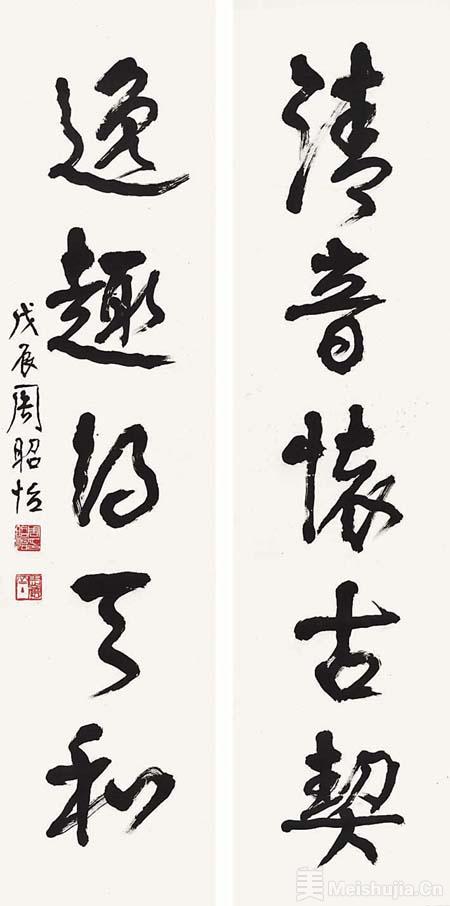 清音懷古契
逸趣得天和
戊辰周昭怡
美 Meishujia.Cn